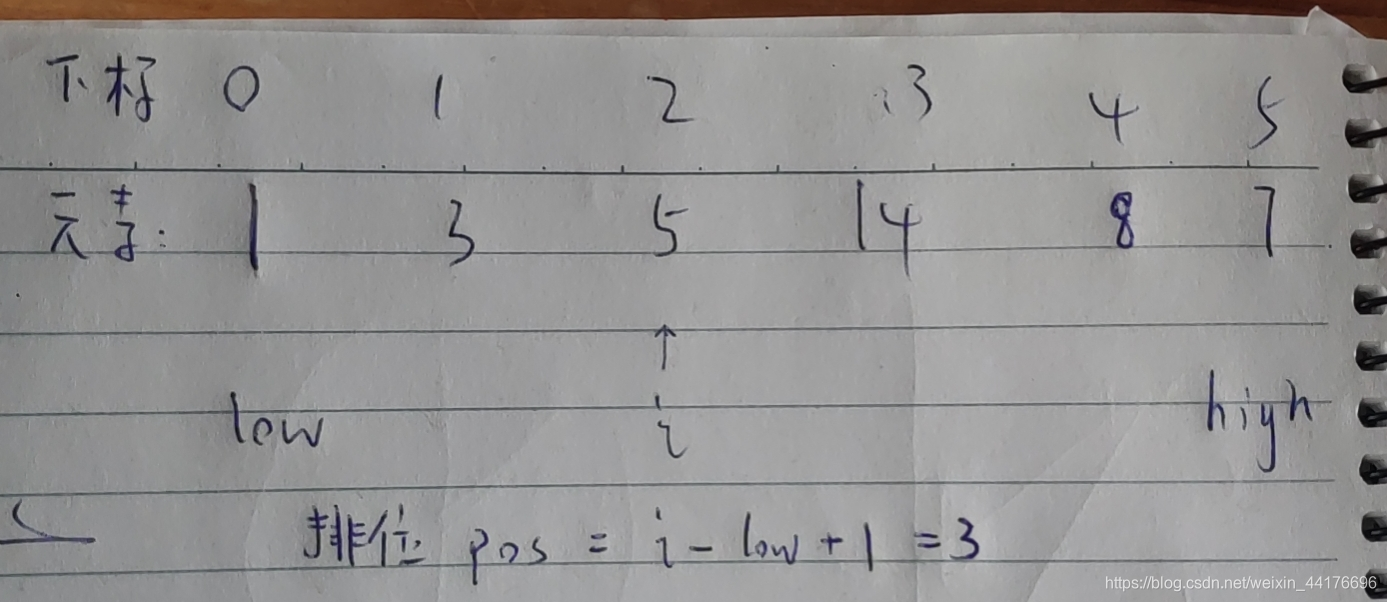 下标 0 1 2 3 4 5
元素: 1 3 5 14 8 7
↑
low i high
排位 pos = i - low + 1 = 3
https://blog.csdn.net/weixin_44176696